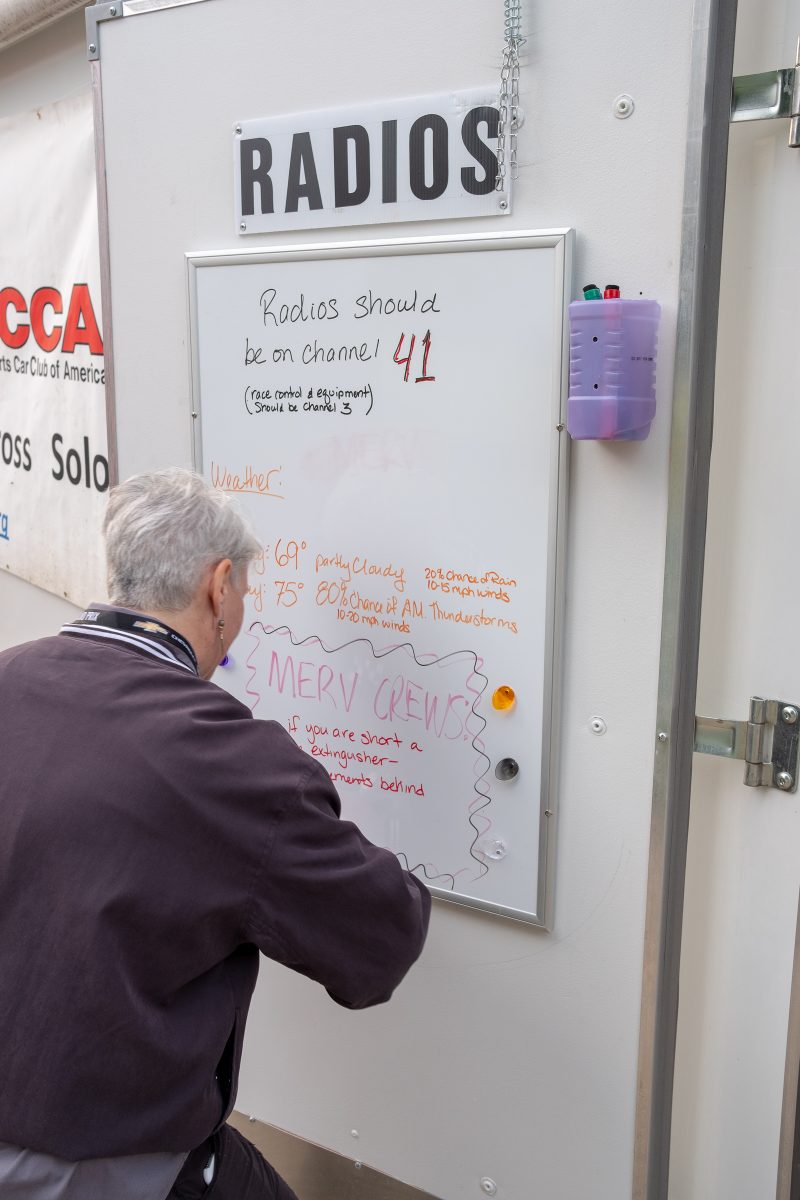 RADIOS
Radios should
be on channel 41
(race control & equipment
Should be channel 3)
MERV
Weather:
69° partly Cloudy 20% Chance of Rain
10-15 mph winds
75° 80% Chance of A.M. Thunderstorms
10-20 mph winds
MERV CREWS:
if you are short a
extinguisher-
behind
CCA
rts Car Club of America
oss Solo
PRIX